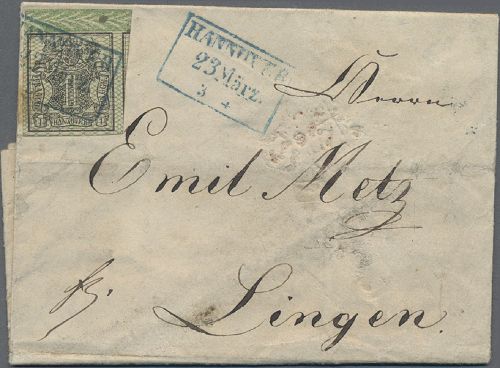 HANNOVER
23 März.
3 4
Herrn
Emil Metz
fr.
Lingen.
HANNOVER